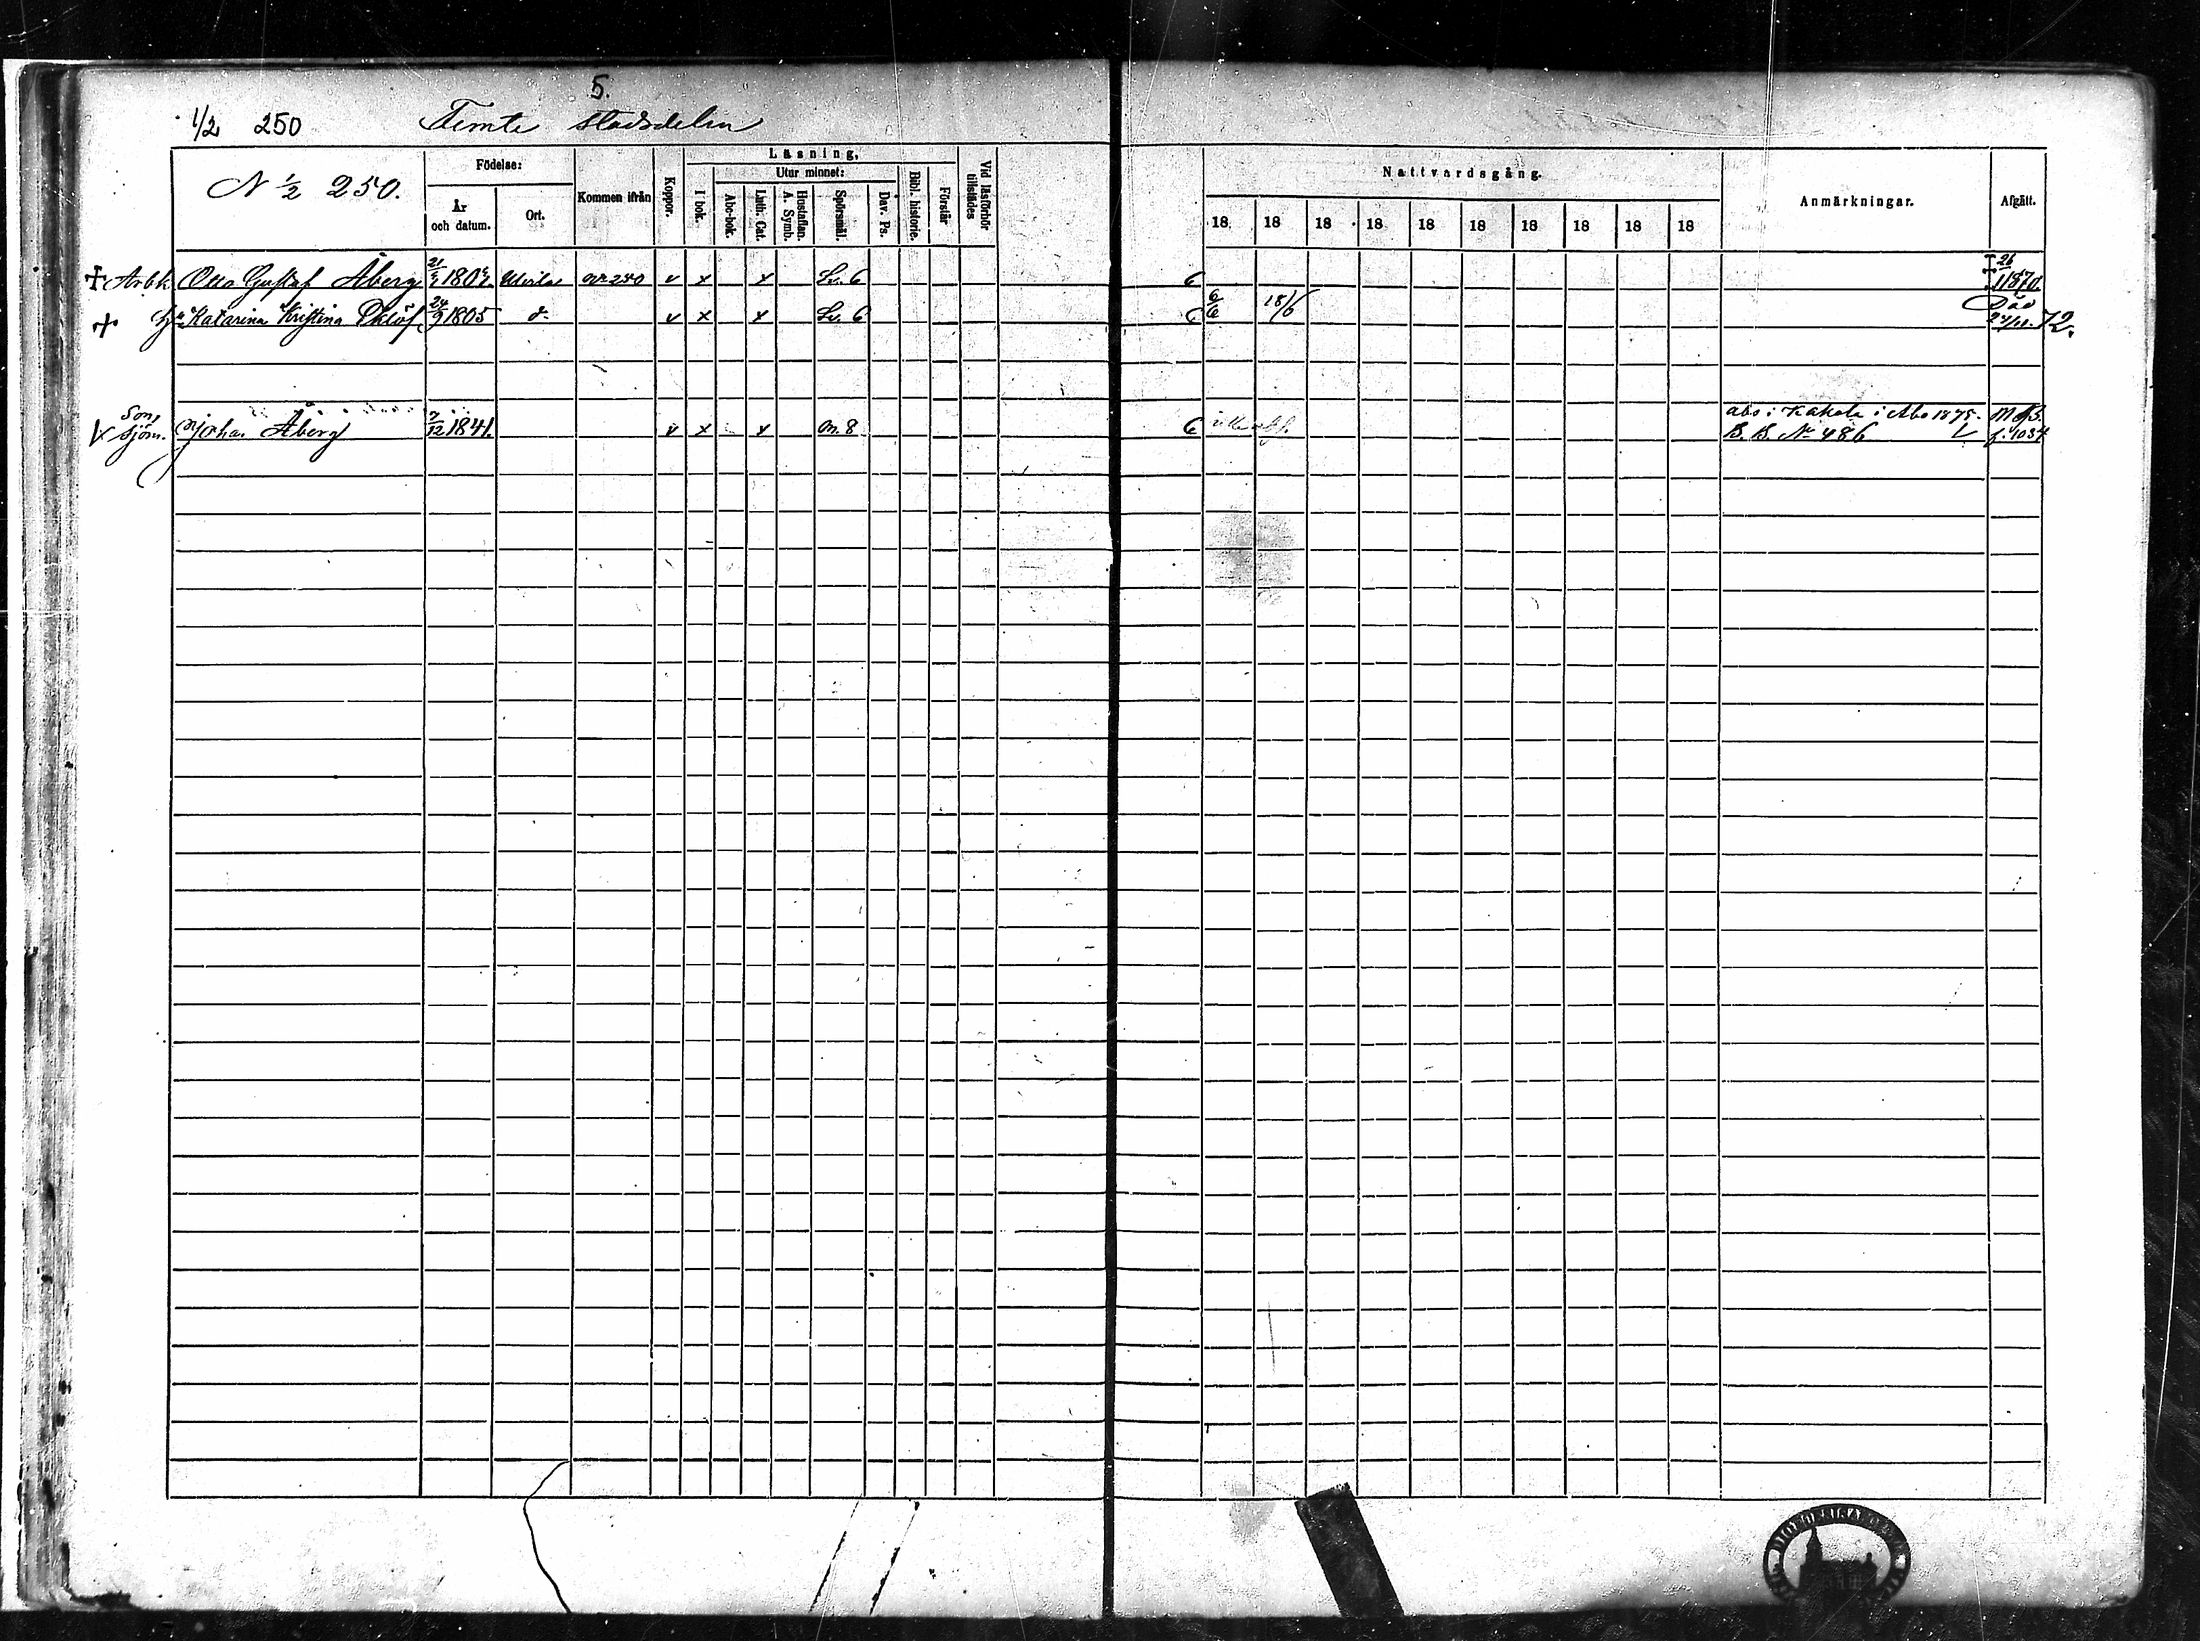 5.
1/2 250 Femte stadsdelen
N 1/2 250.
Födelse:
År och datum.
Ort.
Kommen ifrån
Koppor.
Läsning,
I bok.
Utur minnet:
Abc-bok.
Luth. Cat.
Hustaflan. A. Symb.
Spörsmål.
Dav. Ps.
Bibl. historie.
Förstår
Vid läsförhör tillstädes
Nattvardsgång.
18 18 18 18 18 18 18 18 18 18
Anmärkningar.
Afgått.
Arbk. Otto Gustaf Åberg 21 v x x Sv. 6 6 26 1870.
Katarina Kristina 24/9 1805 d:o v x x Sv. 6 6 6/6 18/6 Död 72.
Son,
Sjöm. Johan Åberg 7/12 1841. v x x 8 6 i Kakola i Åbo 1875.
B. B. No 486 f. 1034